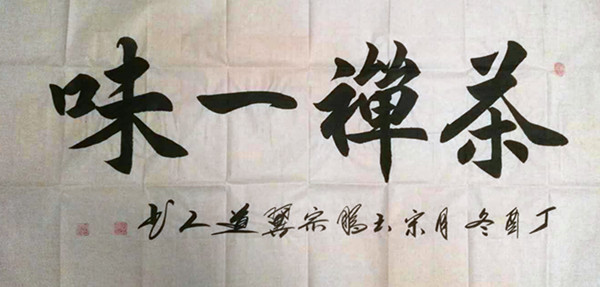 茶禪一味
丁酉冬月宗玉鵬宗翼道人书